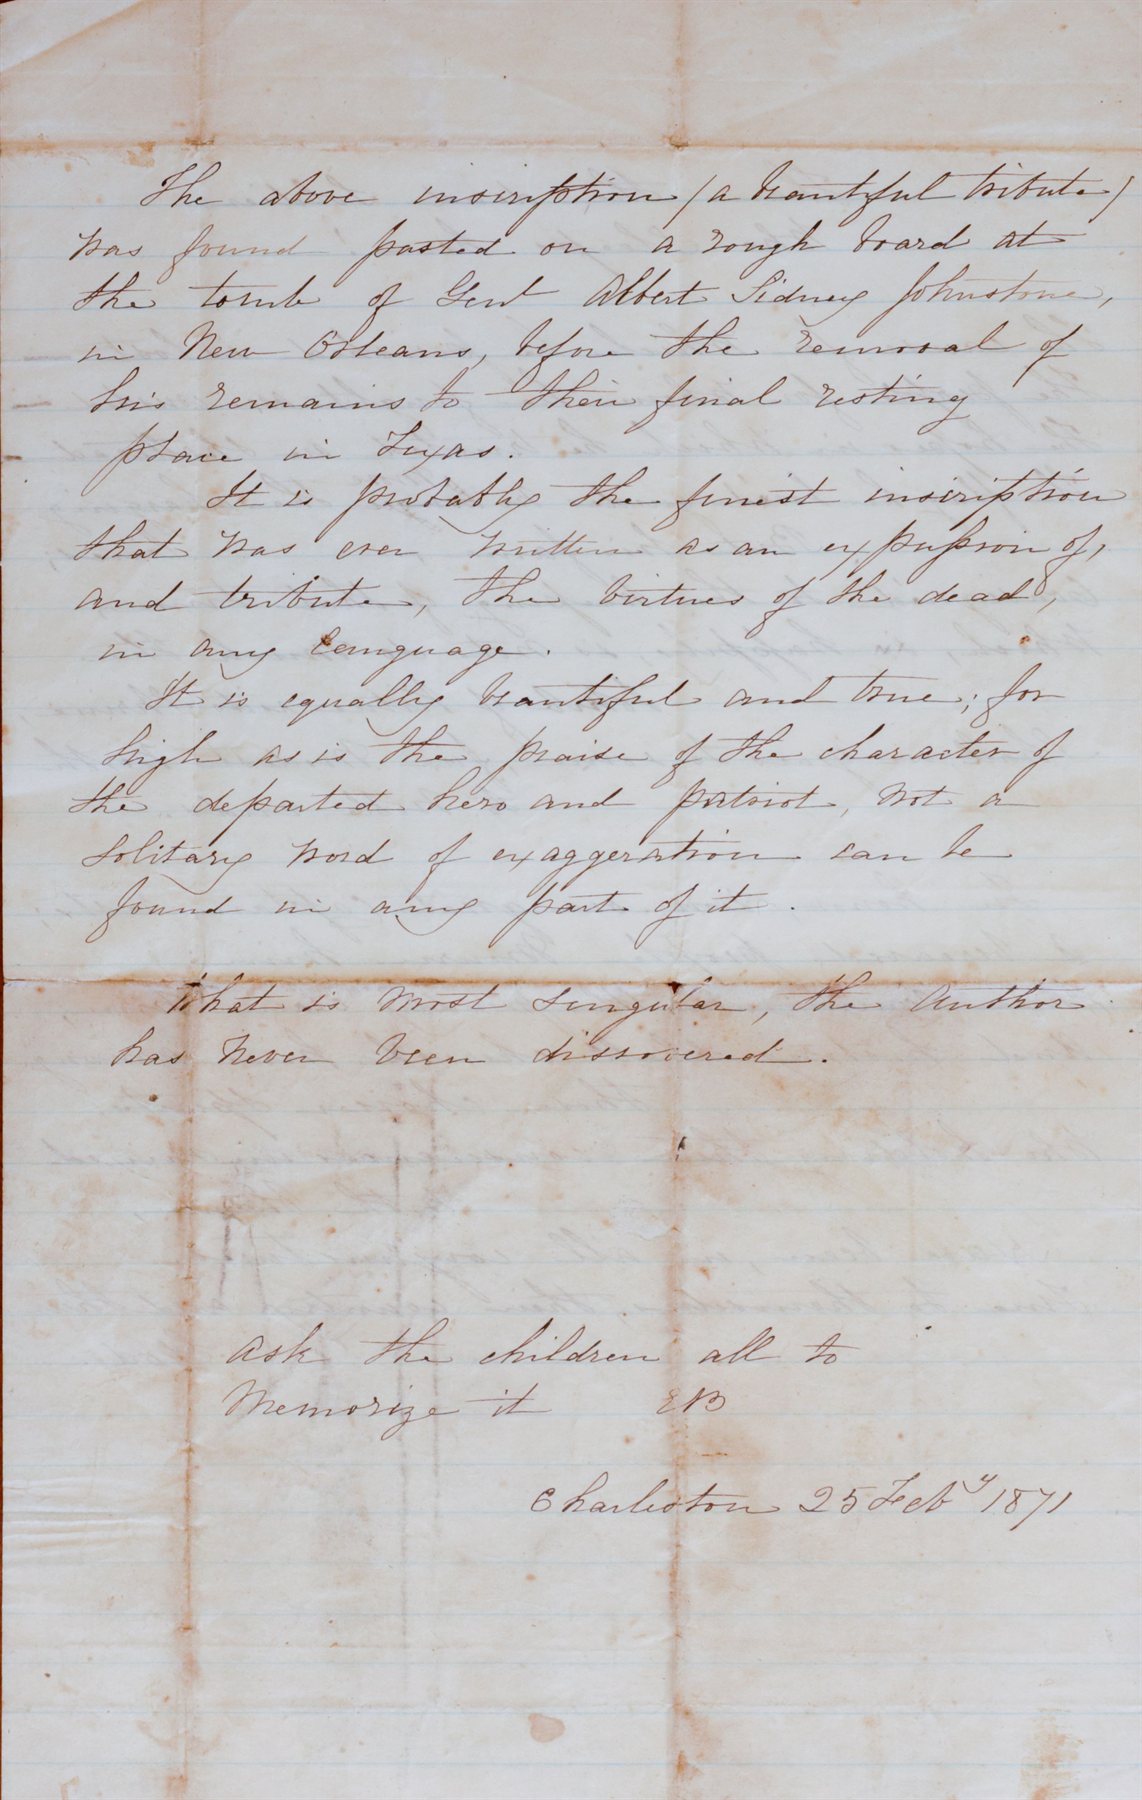 The above inscription (a beautiful tribute)
was found pasted on a rough board at
the tomb of Genl Albert Sidney Johnstone,
in New Orleans, before the removal of
his remains to their final resting
place in Texas.
It is probably the finest inscription
that was ever written as an expression of,
and tribute, the virtues of the dead,
in any language.
It is equally beautiful and true; for
high as is the praise of the character of
the departed hero and patriot, not a
solitary word of exaggeration can be
found in any part of it.
What is most singular, the author
has never been discovered.
Ask the children all to
memorize it EB
Charleston 25 Feby 1871